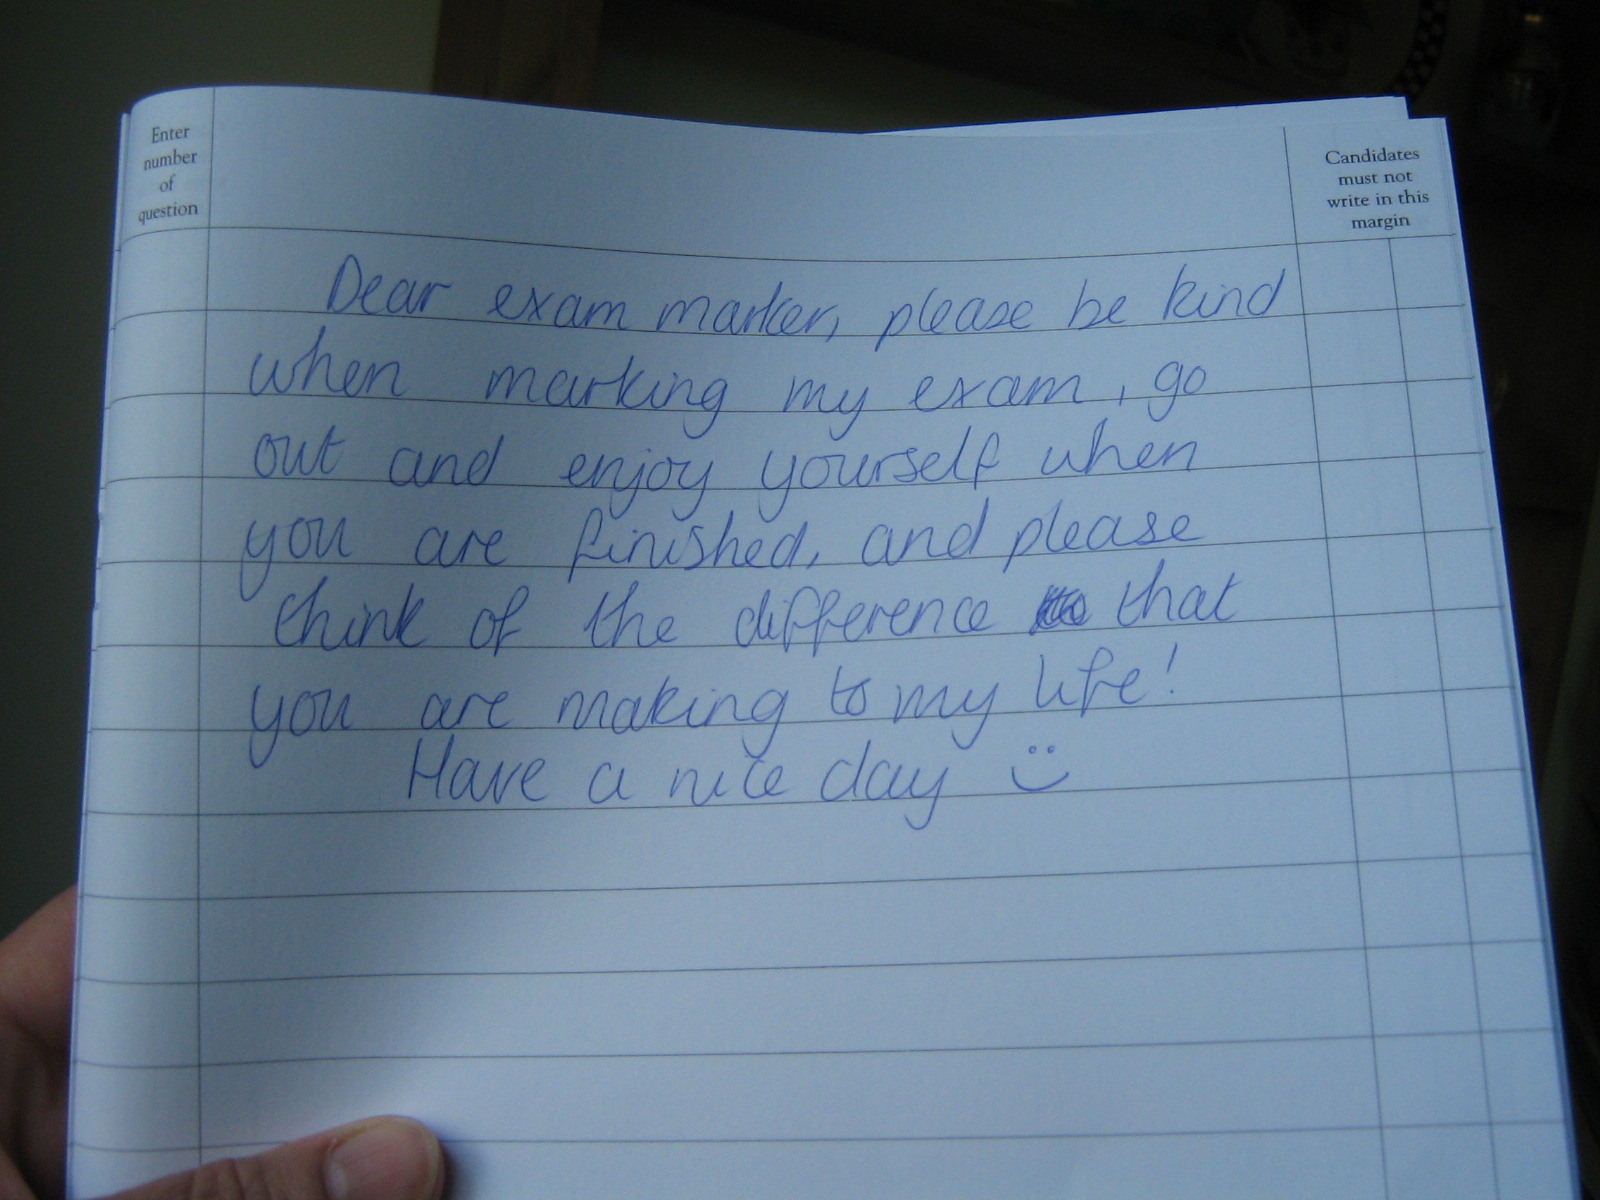 Enter
number
of
question
Candidates
must not
write in this
margin
Dear exam marker, please be kind
when marking my exam, go
out and enjoy yourself when
you are finished, and please
think of the difference that
you are making to my life!
Have a nice day